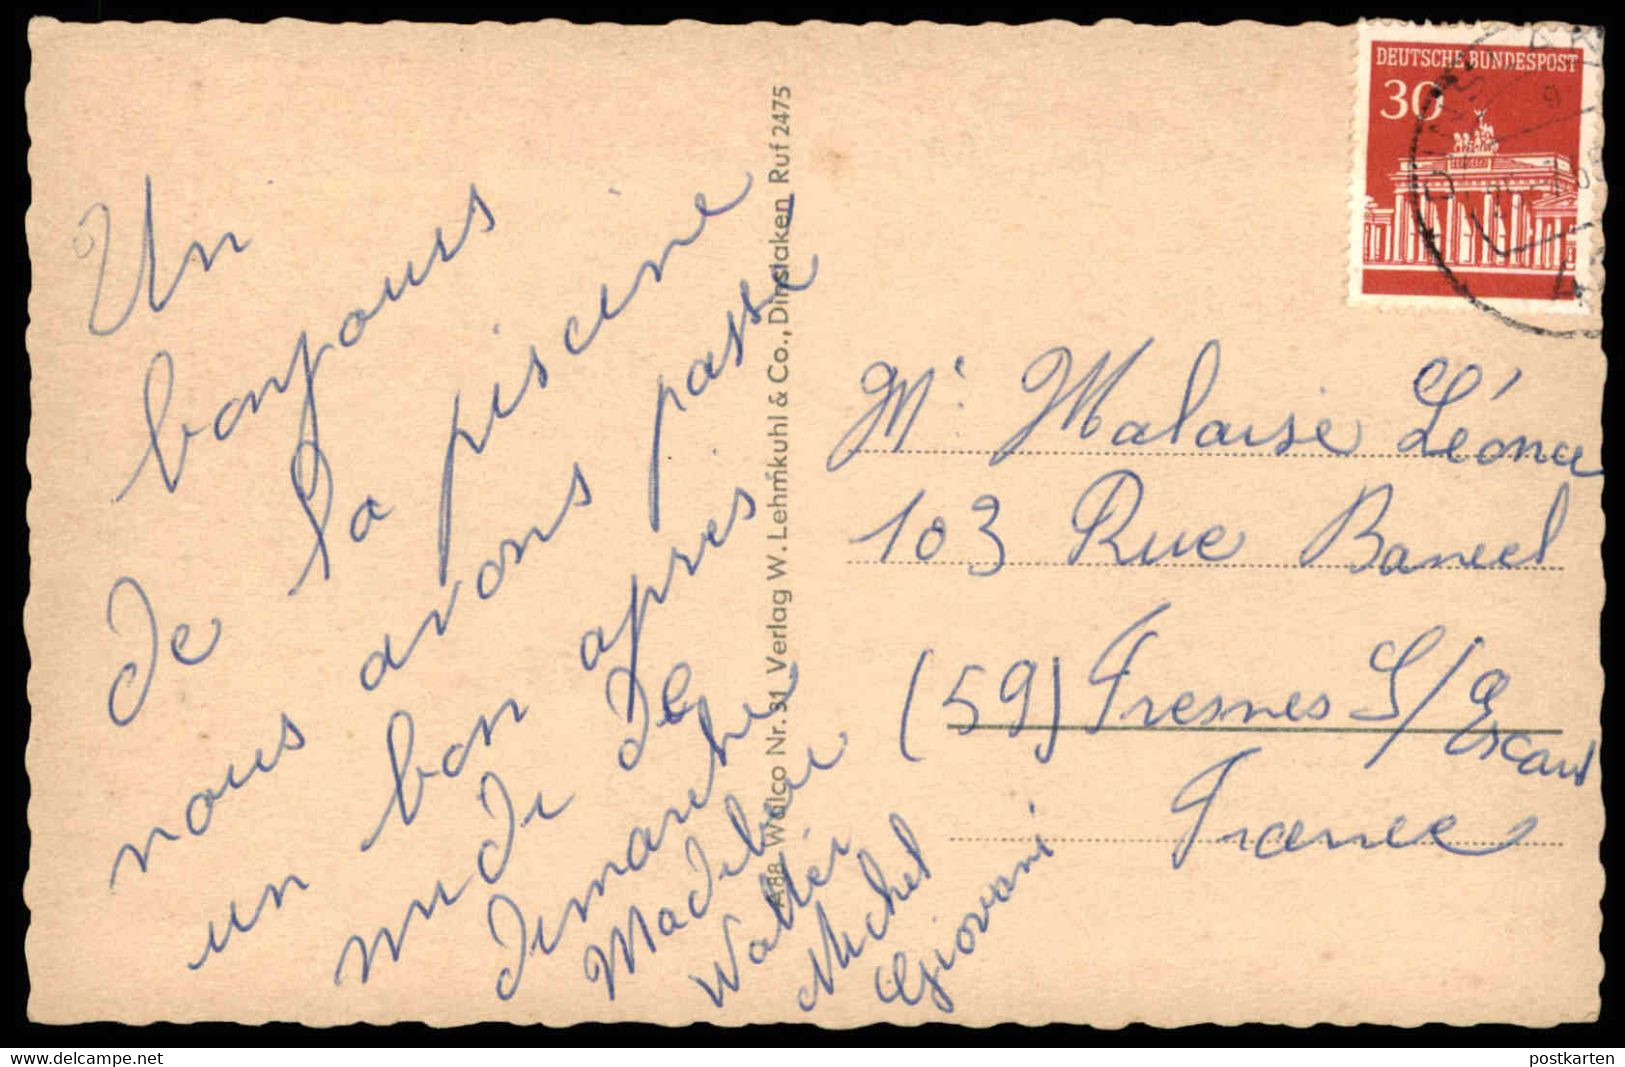 Un
bonjours
de la piscine
nous avons passe
un bon après
midi de
dimanche
Walter
Michel
Giovani
A88 Walco Nr. 31 Verlag W. Lehmkuhl & Co., Dinslaken Ruf 2475
DEUTSCHE BUNDESPOST
30
Mr Malaise Léonce
103 Rue Bancel
(59) Fresnes S/Escaut
France
www.delcampe.net
postkarten